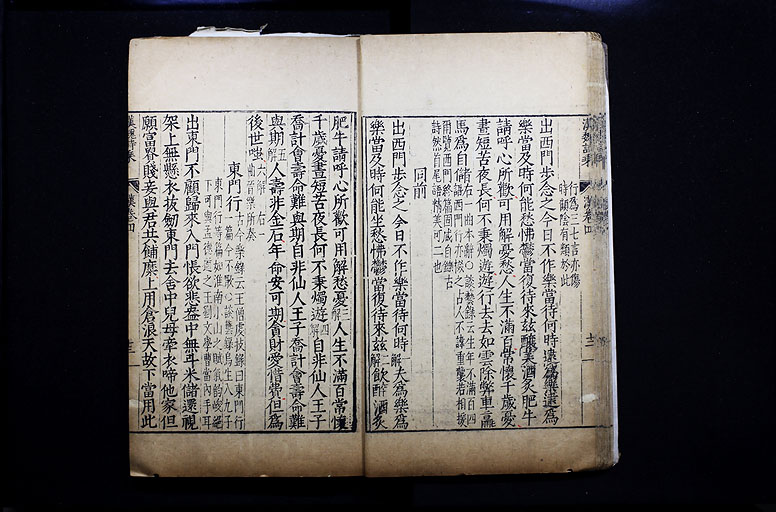 行爲三七言亦傷
時顛陰有類於此
出西門步念之今日不作樂當待何時逮爲樂逮爲
樂當及時何能愁怫鬱當復待來玆釀美酒炙肥牛
請呼心所歡可用解憂愁人生不滿百常懷千歲憂
晝短苦夜長何不秉燭遊遊行去去如雲除弊車羸
馬爲自儲
右一曲本辭
同前
出西門步念之今日不作樂當待何時一解夫爲樂爲
樂當及時何能坐愁怫鬱當復待來玆二解飲醇酒炙
肥牛請呼心所歡可用解愁憂三解人生不滿百常懷
千歲憂晝短苦夜長何不秉燭遊四解自非仙人王子
喬計會壽命難與期自非仙人王子喬計會壽命難
與期五解人壽非金石年命安可期貪財愛惜費但爲
後世嗤六解
右一曲晉樂所奏
東門行
古今樂錄云王僧虔技錄曰東門行
出東門不顧歸來入門悵欲悲盎中無斗米儲還視
架上無懸衣拔劒東門去舍中兒母牽衣啼他家但
願富貴賤妾與君共餔糜上用倉浪天故下當用此